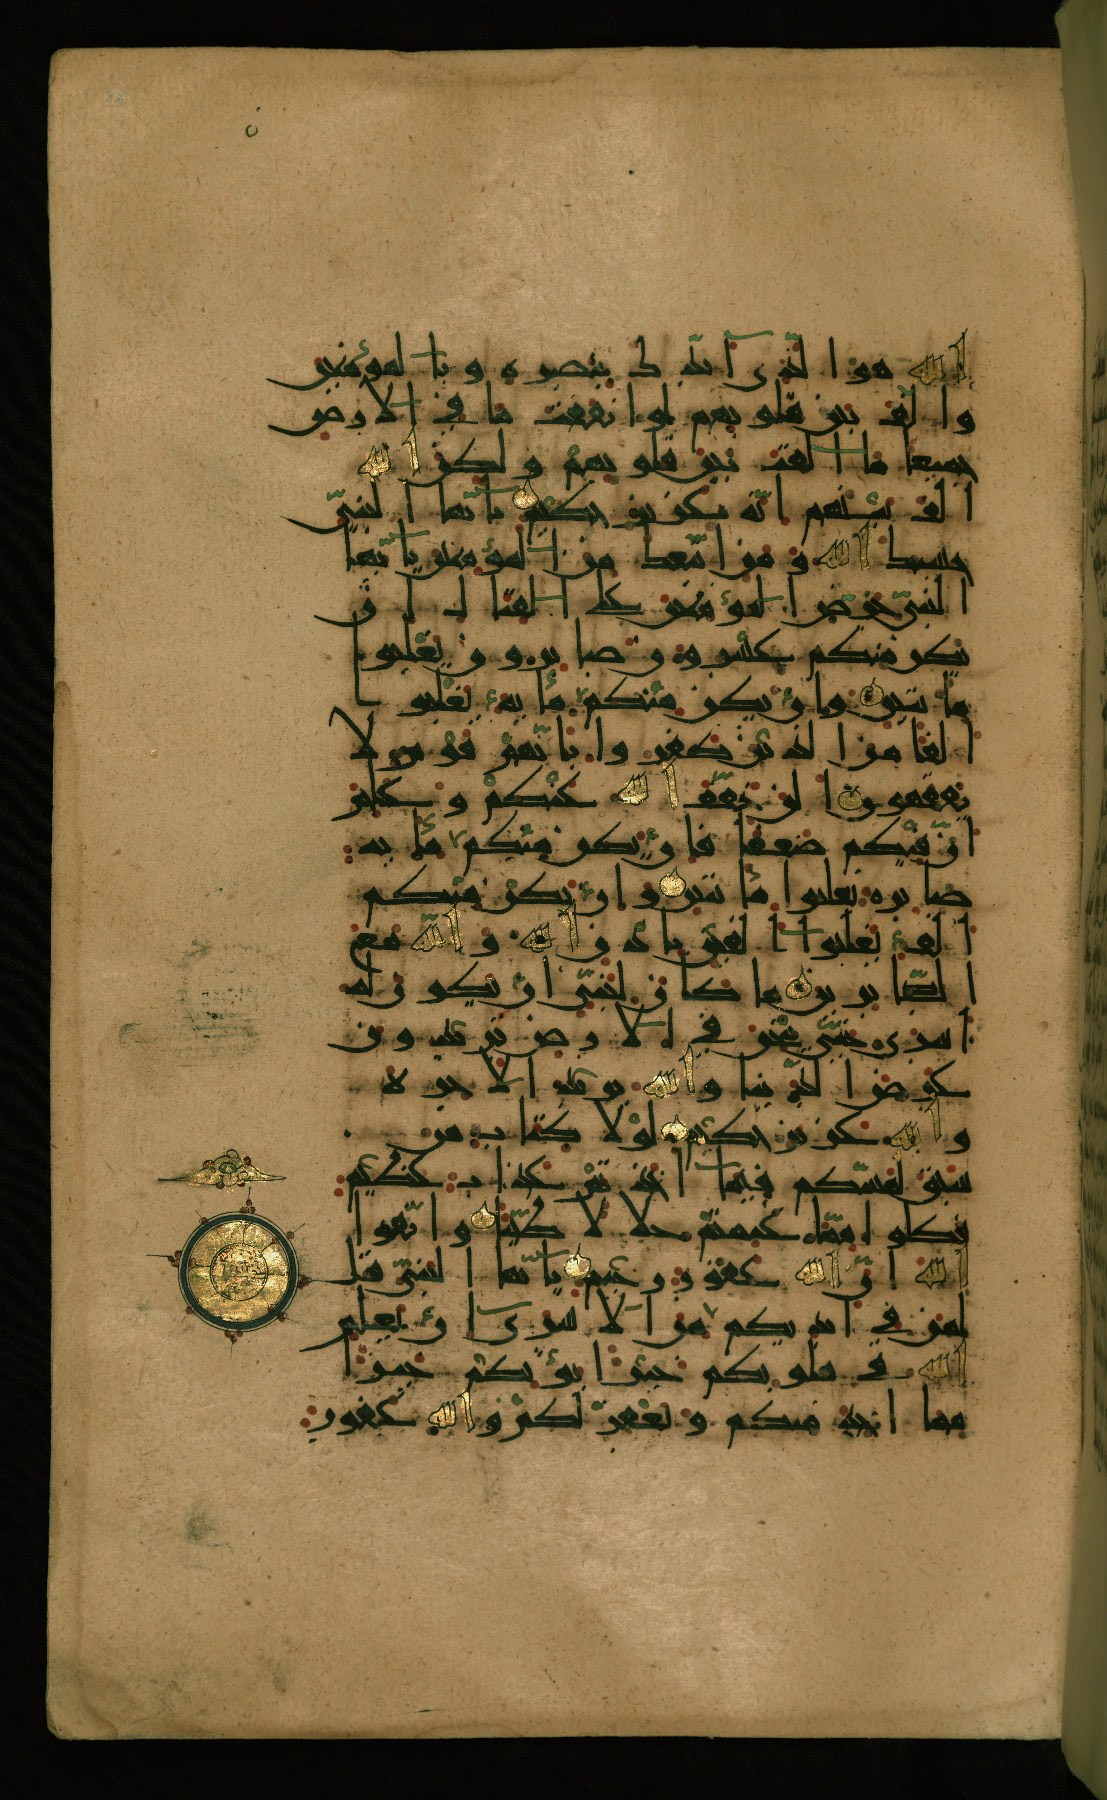 الله هو الذي أيدك بنصره وبالمؤمنين
وألف بين قلوبهم لو أنفقت ما في الأرض
جميعا ما ألفت بين قلوبهم ولكن الله
ألف بينهم إنه عزيز حكيم يأيها النبي
حسبك الله ومن اتبعك من المؤمنين يأيها
النبي حرض المؤمنين على القتال إن
يكن منكم عشرون صابرون يغلبوا
مائتين وإن يكن منكم مائة يغلبوا
ألفا من الذين كفروا بأنهم قوم لا
يفقهون الن خفف الله عنكم وعلم
أن فيكم ضعفا فإن يكن منكم مائة
صابرة يغلبوا مائتين وإن يكن منكم
ألف يغلبوا ألفين بإذن الله والله مع
الصابرين ما كان لنبي أن يكون له
أسرى حتى يثخن في الأرض تريدون
عرض الدنيا والله يريد الآخرة
والله عزيز حكيم لولا كتاب من
سبق لمسكم فيما أخذتم عذاب عظيم
فكلوا مما غنمتم حلالا طيبا واتقوا
الله إن الله غفور رحيم يأيها النبي قل
لمن في أيديكم من الأسرى إن يعلم
الله في قلوبكم خيرا يؤتكم خيرا
مما أخذ منكم ويغفر لكم والله غفور